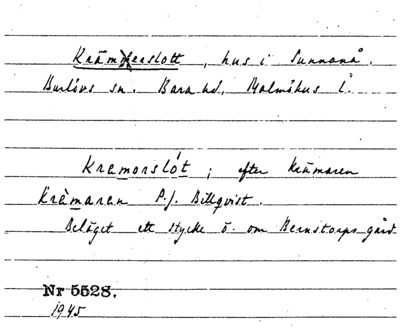 Krämerslott, hus i Sunnanå.
Burlövs sn. Bara hd. Malmöhus l.
Kremorslót; efter Krämaren
Krämaren P. J. Billqvist.
Beläget ett stycke ö. om Bernstorps gård
Nr 5528.
1945